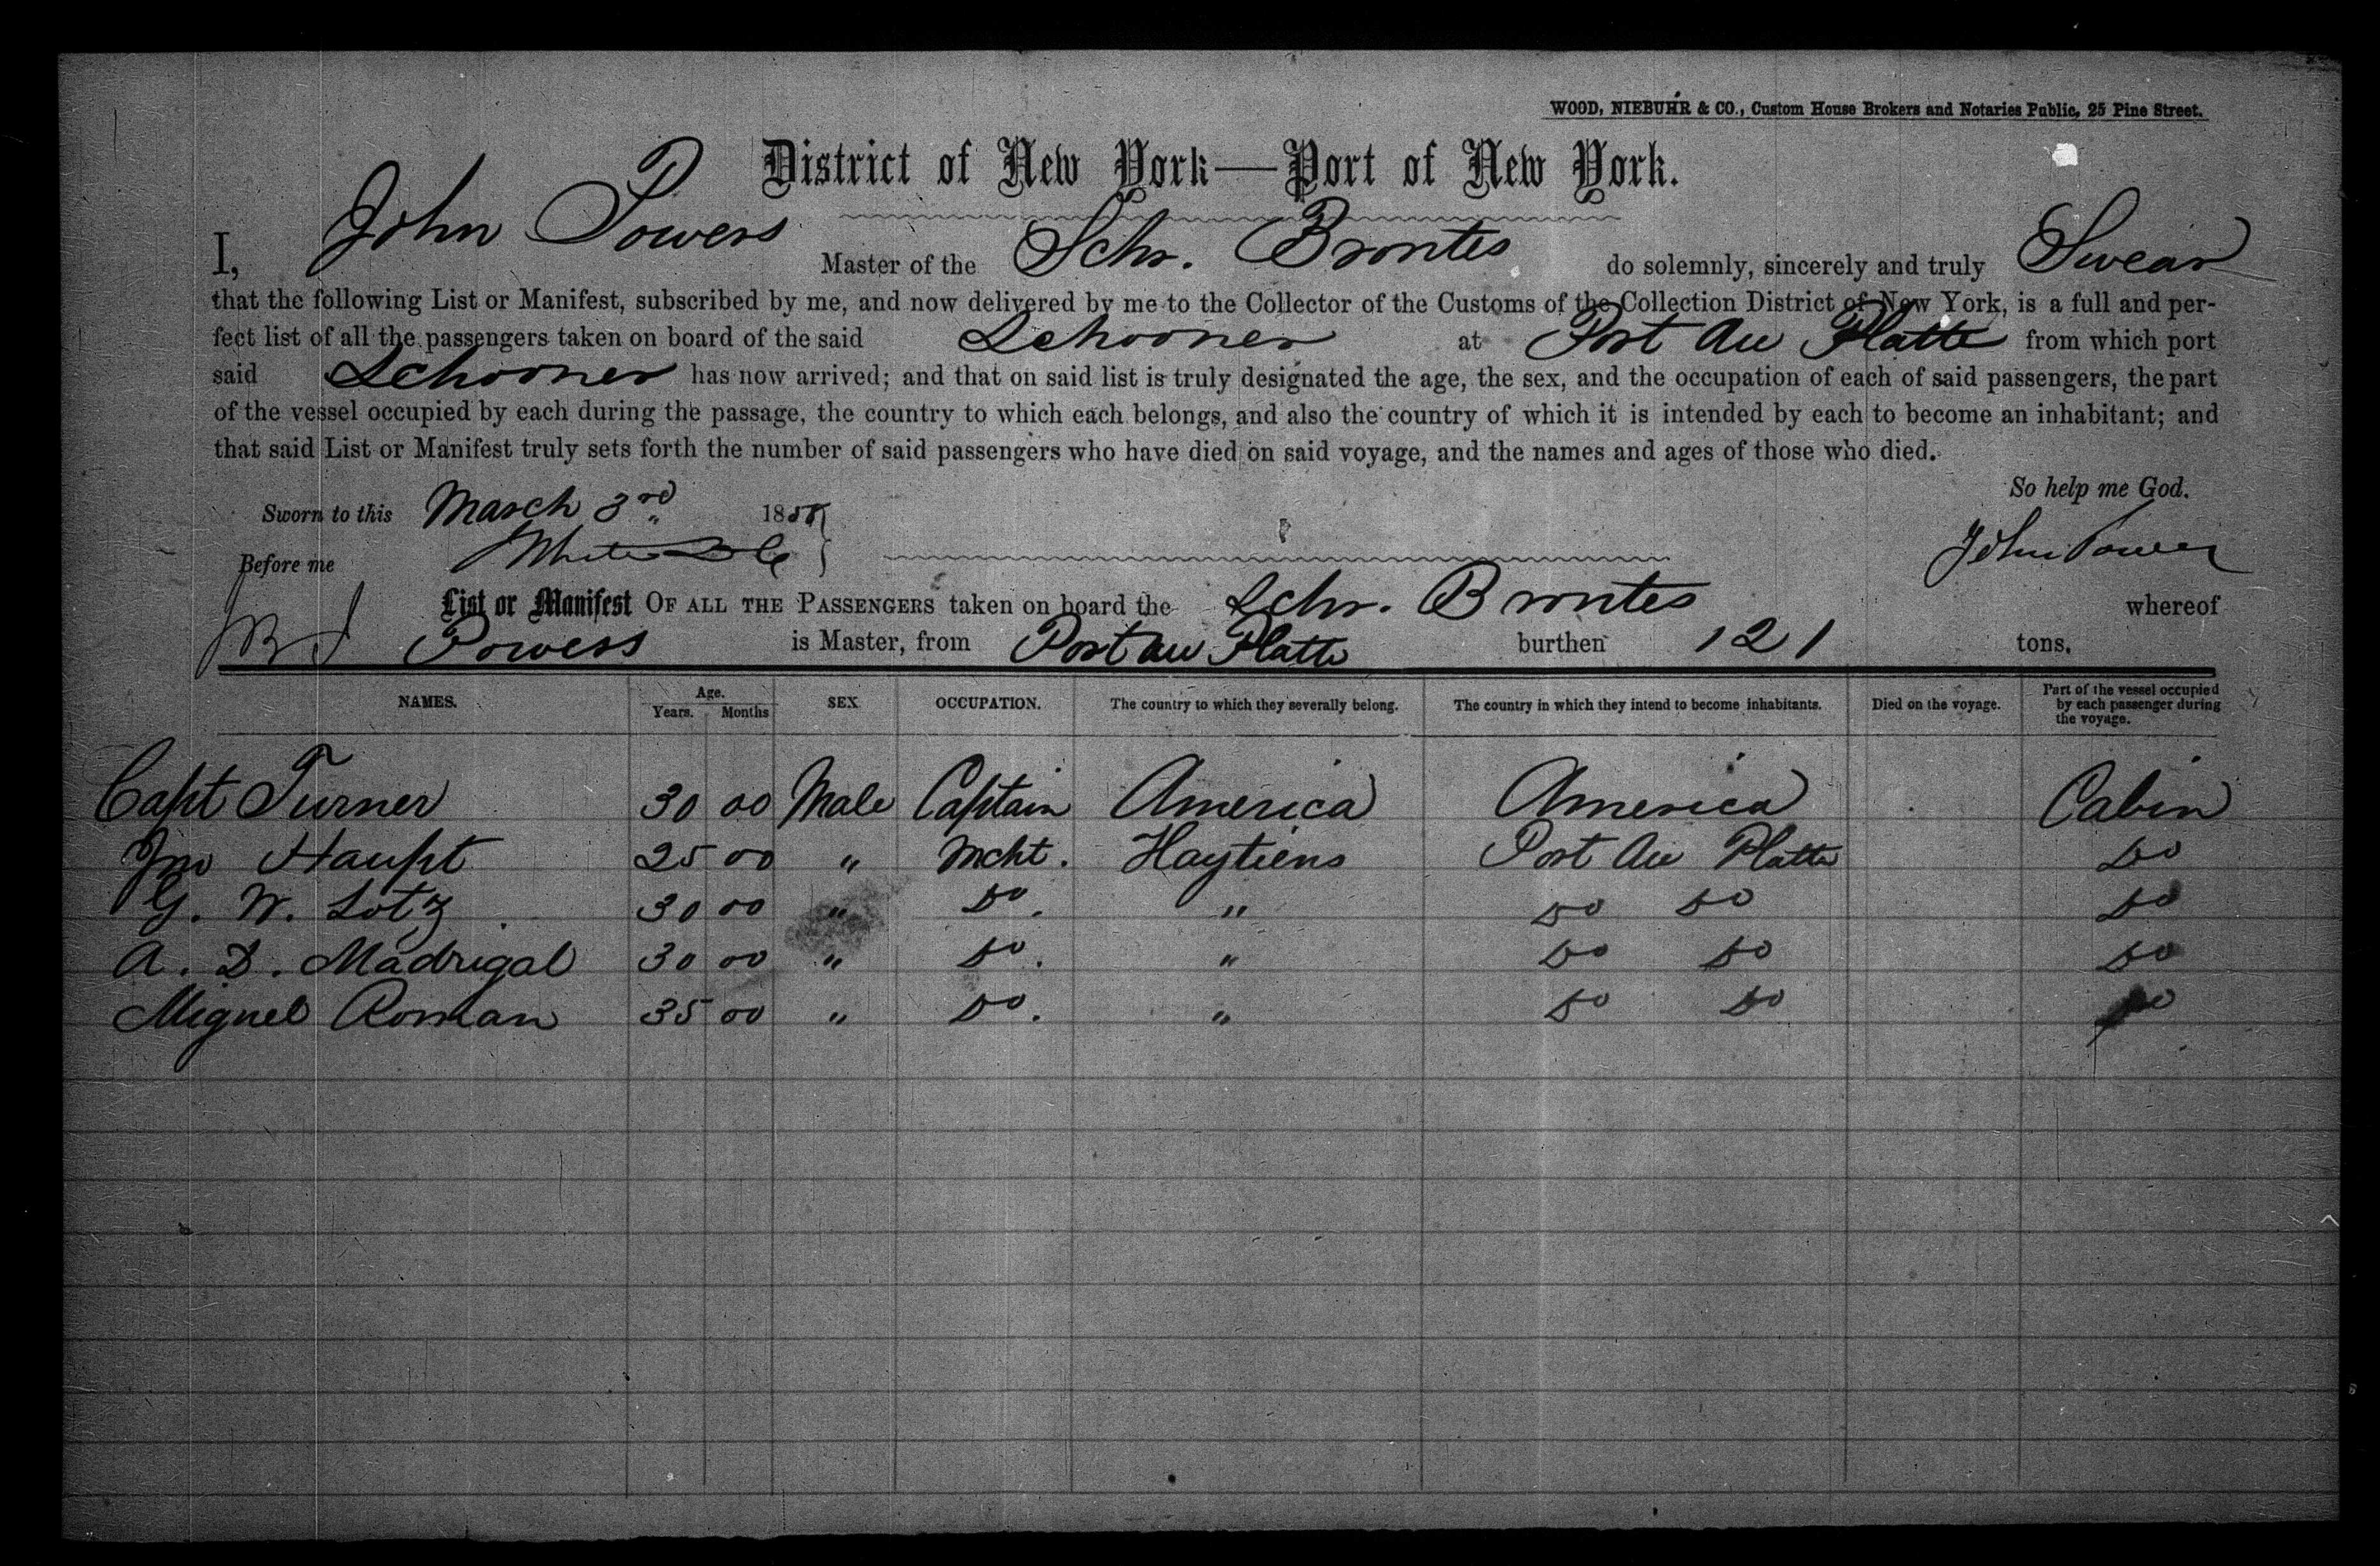 WOOD, NIEBUHR & CO., Custom House Brokers and Notaries Public, 25 Pine Street.
District of New York—Port of New York.
I, John Powers Master of the Schr. Brontes do solemnly, sincerely and truly Swear
that the following List or Manifest, subscribed by me, and now delivered by me to the Collector of the Customs of the Collection District of New York, is a full and per-
fect list of all the passengers taken on board of the said Schooner at Port Au Platte from which port
said Schooner has now arrived; and that on said list is truly designated the age, the sex, and the occupation of each of said passengers, the part
of the vessel occupied by each during the passage, the country to which each belongs, and also the country of which it is intended by each to become an inhabitant; and
that said List or Manifest truly sets forth the number of said passengers who have died on said voyage, and the names and ages of those who died.
So help me God.
Sworn to this March 3rd 1858
John Power
Before me
List or Manifest OF ALL THE PASSENGERS taken on board the Schr. Brontes whereof
Powers is Master, from Port au Platte burthen 121 tons.
NAMES. Age. Years. Months SEX OCCUPATION. The country to which they severally belong. The country in which they intend to become inhabitants. Died on the voyage. Part of the vessel occupied by each passenger during the voyage.
Capt Turner 30 00 Male Captain America America Cabin
Jno Haupt 25 00 " Mcht. Haytiens Port Au Platte Do
G. W. Lotz 30 00 " Do. " Do Do Do
A. D. Madrigal 30 00 " Do. " Do Do Do
Miguel Roman 35 00 " Do. " Do Do Do